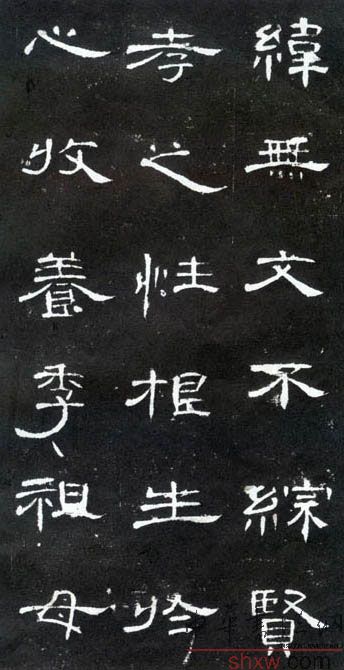 緯無文不綜賢
孝之性根生於
心收養季祖母
shxw.com